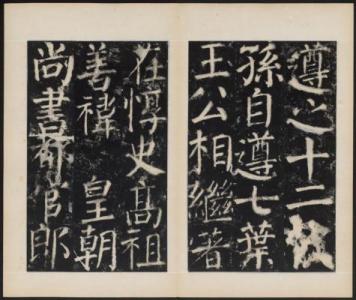 遵之十二
孫自遵七葉
王公相繼著
在惇史高祖
善禕　皇朝
尚書都官郎